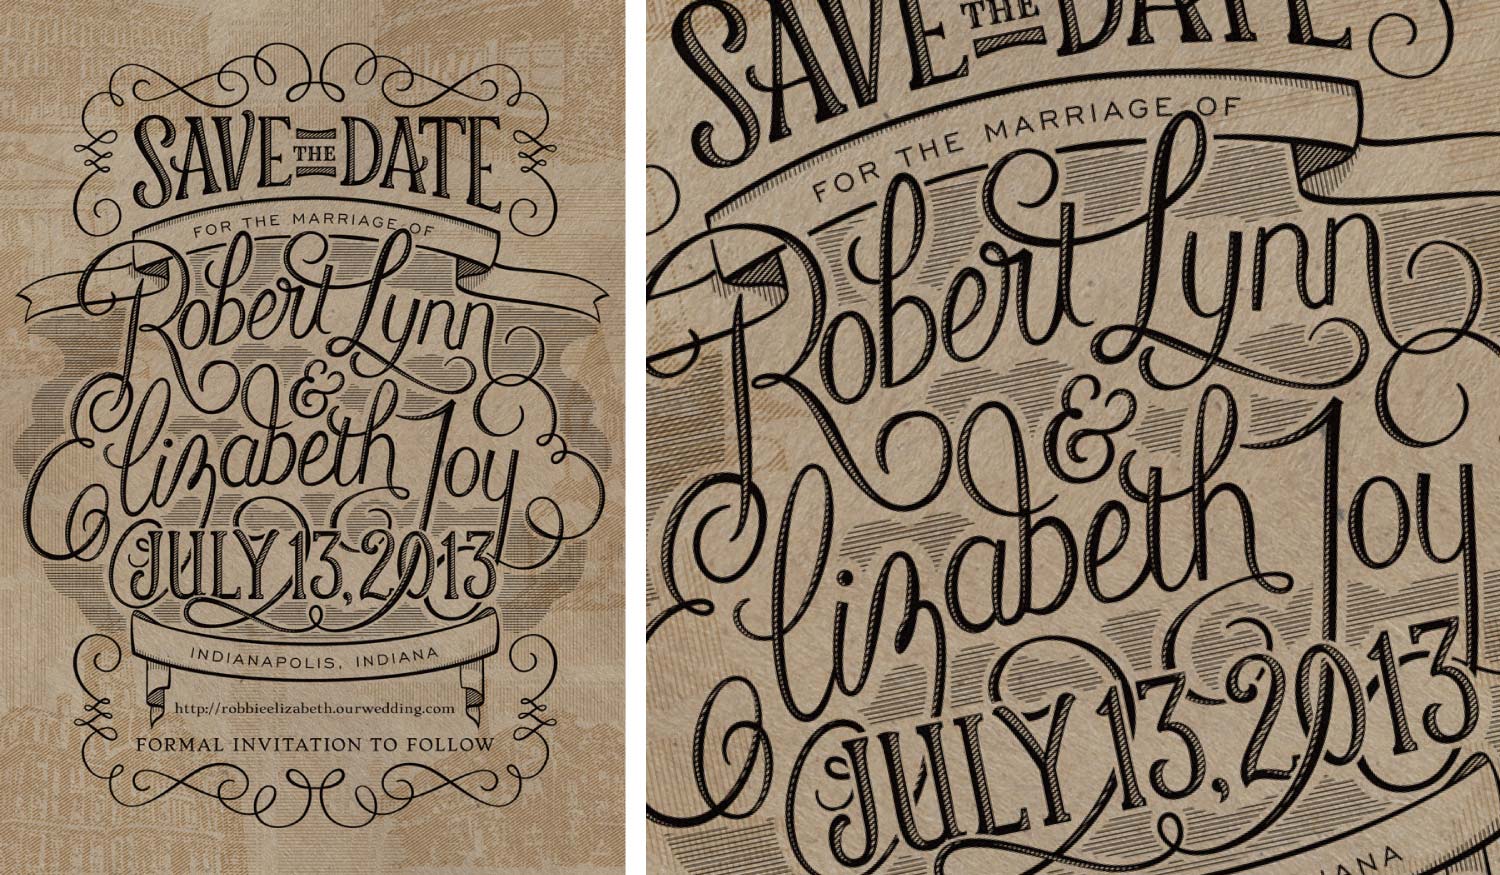 SAVE THE DATE
FOR THE MARRIAGE OF
Robert Lynn
&
Elizabeth Joy
JULY 13, 2013
INDIANAPOLIS, INDIANA
http://robbieelizabeth.ourwedding.com
FORMAL INVITATION TO FOLLOW
SAVE THE DATE
FOR THE MARRIAGE OF
Robert Lynn
&
Elizabeth Joy
JULY 13, 2013
IANA